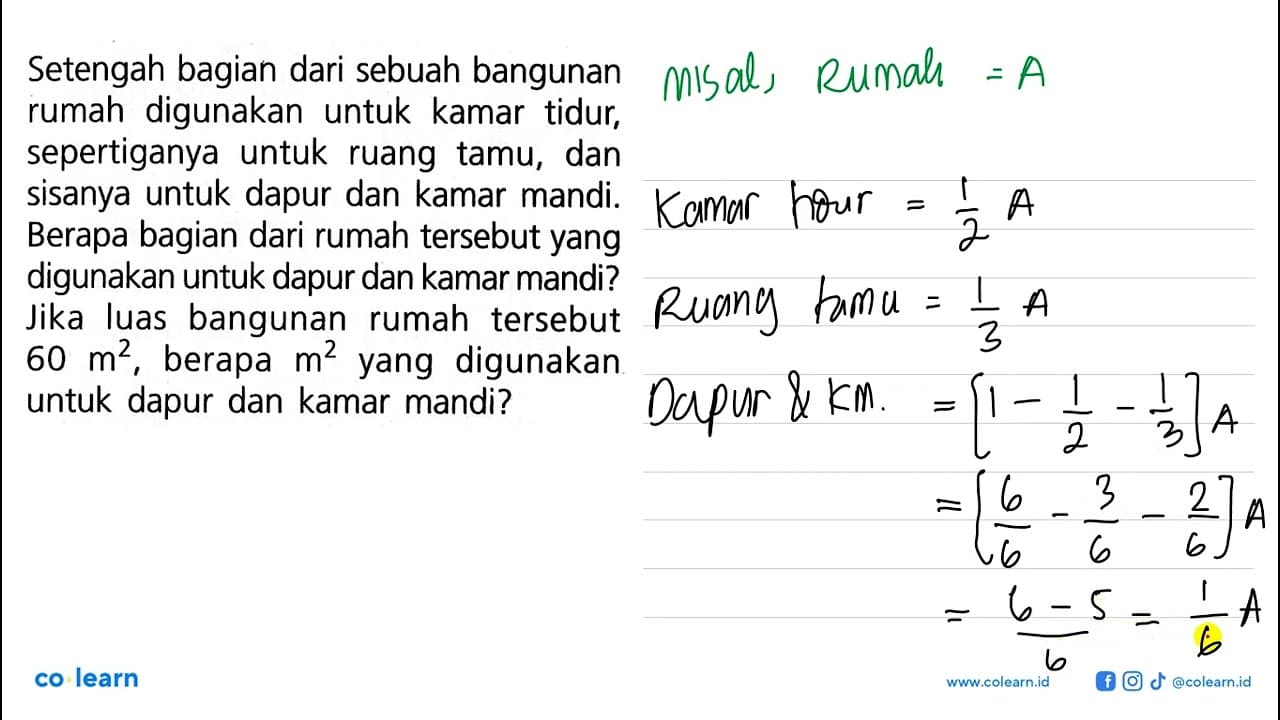 Setengah bagian dari sebuah bangunan
rumah digunakan untuk kamar tidur,
sepertiganya untuk ruang tamu, dan
sisanya untuk dapur dan kamar mandi.
Berapa bagian dari rumah tersebut yang
digunakan untuk dapur dan kamar mandi?
Jika luas bangunan rumah tersebut
60 m², berapa m² yang digunakan
untuk dapur dan kamar mandi?
misal, Rumah = A
Kamar tidur = 1/2 A
Ruang tamu = 1/3 A
Dapur & KM. = [1 - 1/2 - 1/3] A
= [6/6 - 3/6 - 2/6] A
= 6 - 5/6 = 1/6 A
co learn
www.colearn.id @colearn.id